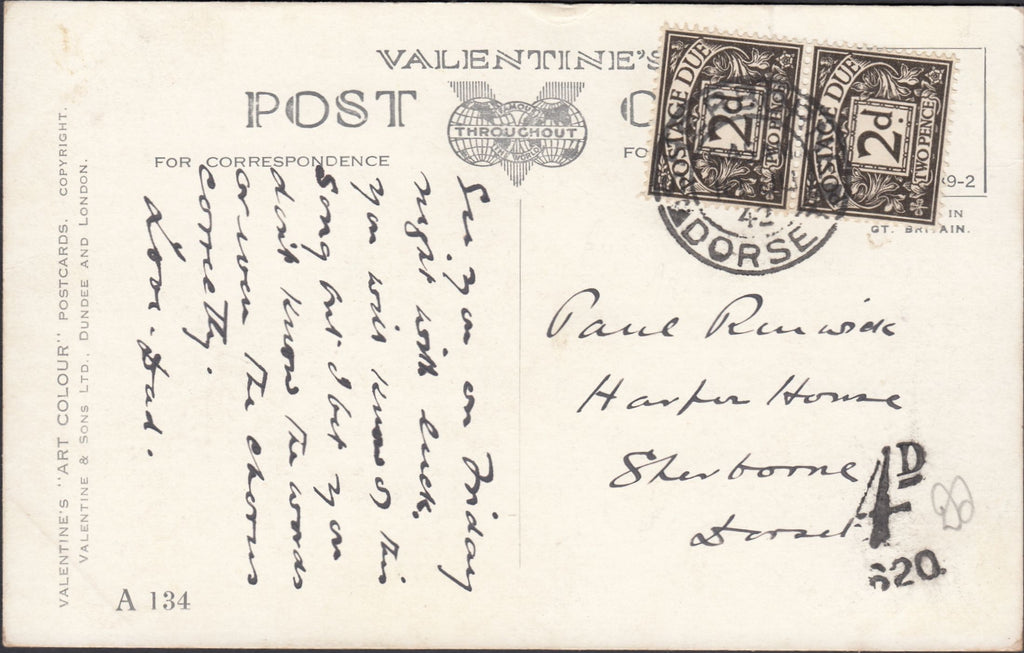 VALENTINE'S
POST C
FAMOUS
THROUGHOUT
THE WORLD
FOR CORRESPONDENCE
FO
POSTAGE DUE
2d.
TWO PENCE
POSTAGE DUE
2d.
TWO PENCE
9-2
IN
GT. BRITAIN.
42
DORSE
See you on Friday
night with luck.
You will know of this
song but I bet you
don't know the words
or even the chorus
correctly.
Love. Dad.
Paul Renwick
Harper House
Sherborne
Dorset
4D
620
A 134
VALENTINE'S "ART COLOUR" POSTCARDS. COPYRIGHT.
VALENTINE & SONS LTD., DUNDEE AND LONDON.